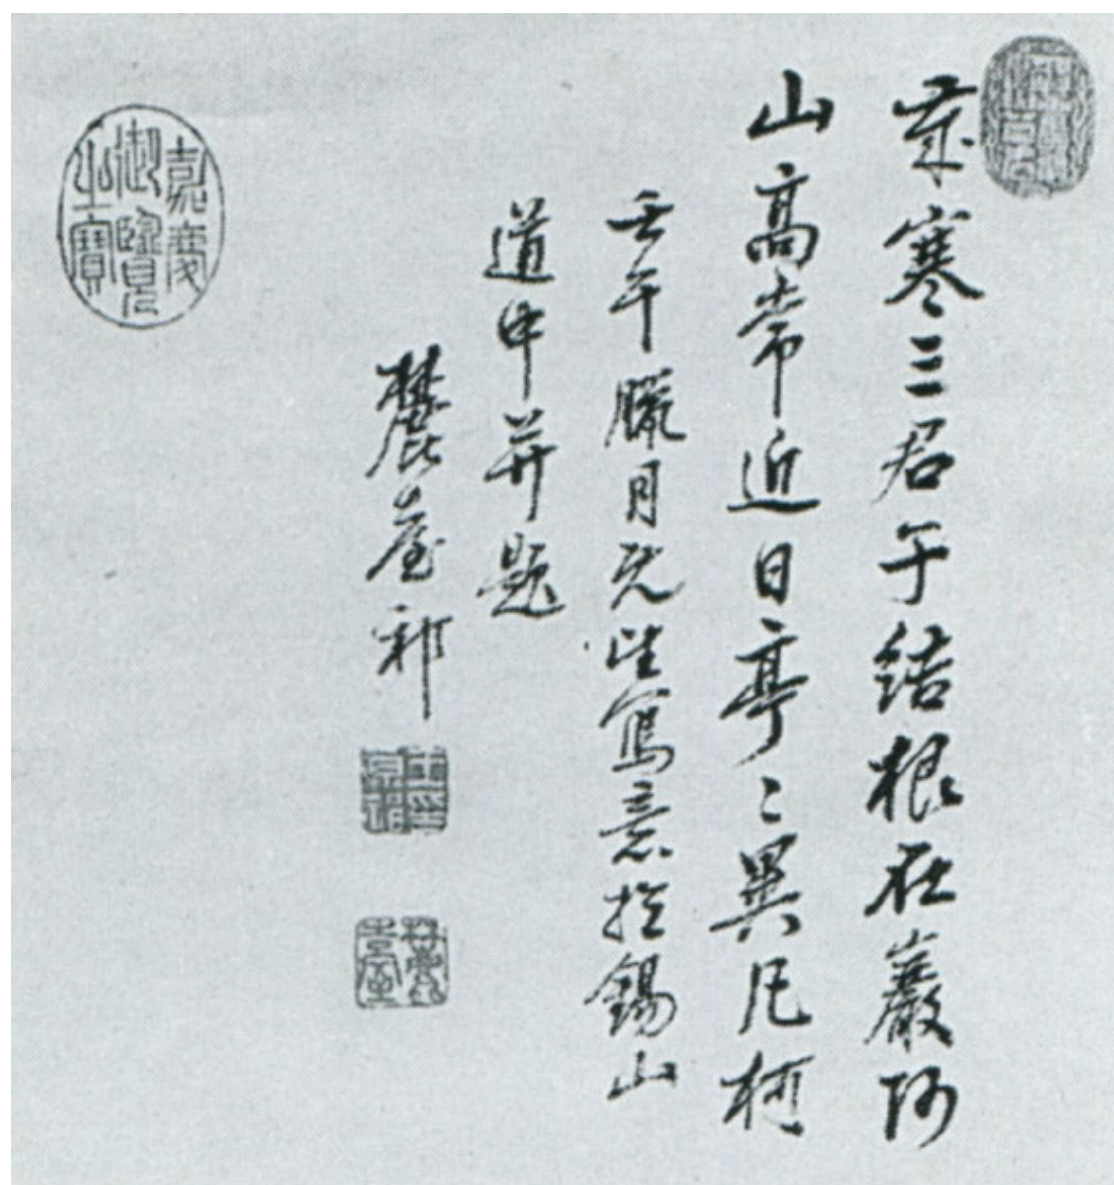 歲寒三君子結根在巖阿
山高常近日亭〻異凡柯
壬午臘月既望寫意於錫山
道中并題
麓臺祁
嘉慶御覽之寶